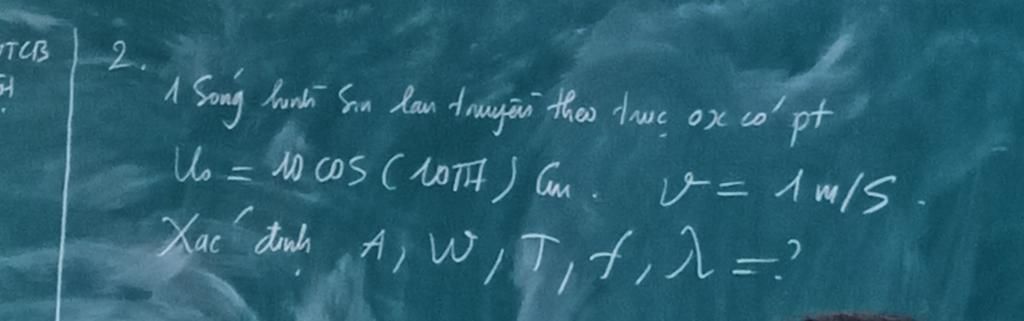 TCB
2.
1 Sóng hình sin lan truyền theo trục ox có pt
U₀ = 10 cos (10πt) cm. v = 1 m/s.
Xác định A, W, T, f, λ = ?